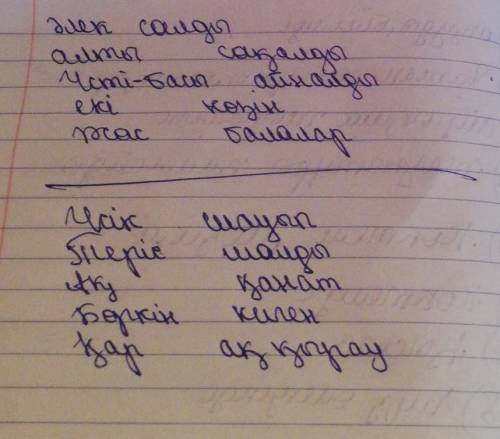 әлек салды
алты сақалды
Үсті-басы айналды
екі көзін
жас балалар
Үсік шауып
Теріс шалды
Аққ қанат
Бөркін киген
Қар ақ қырау